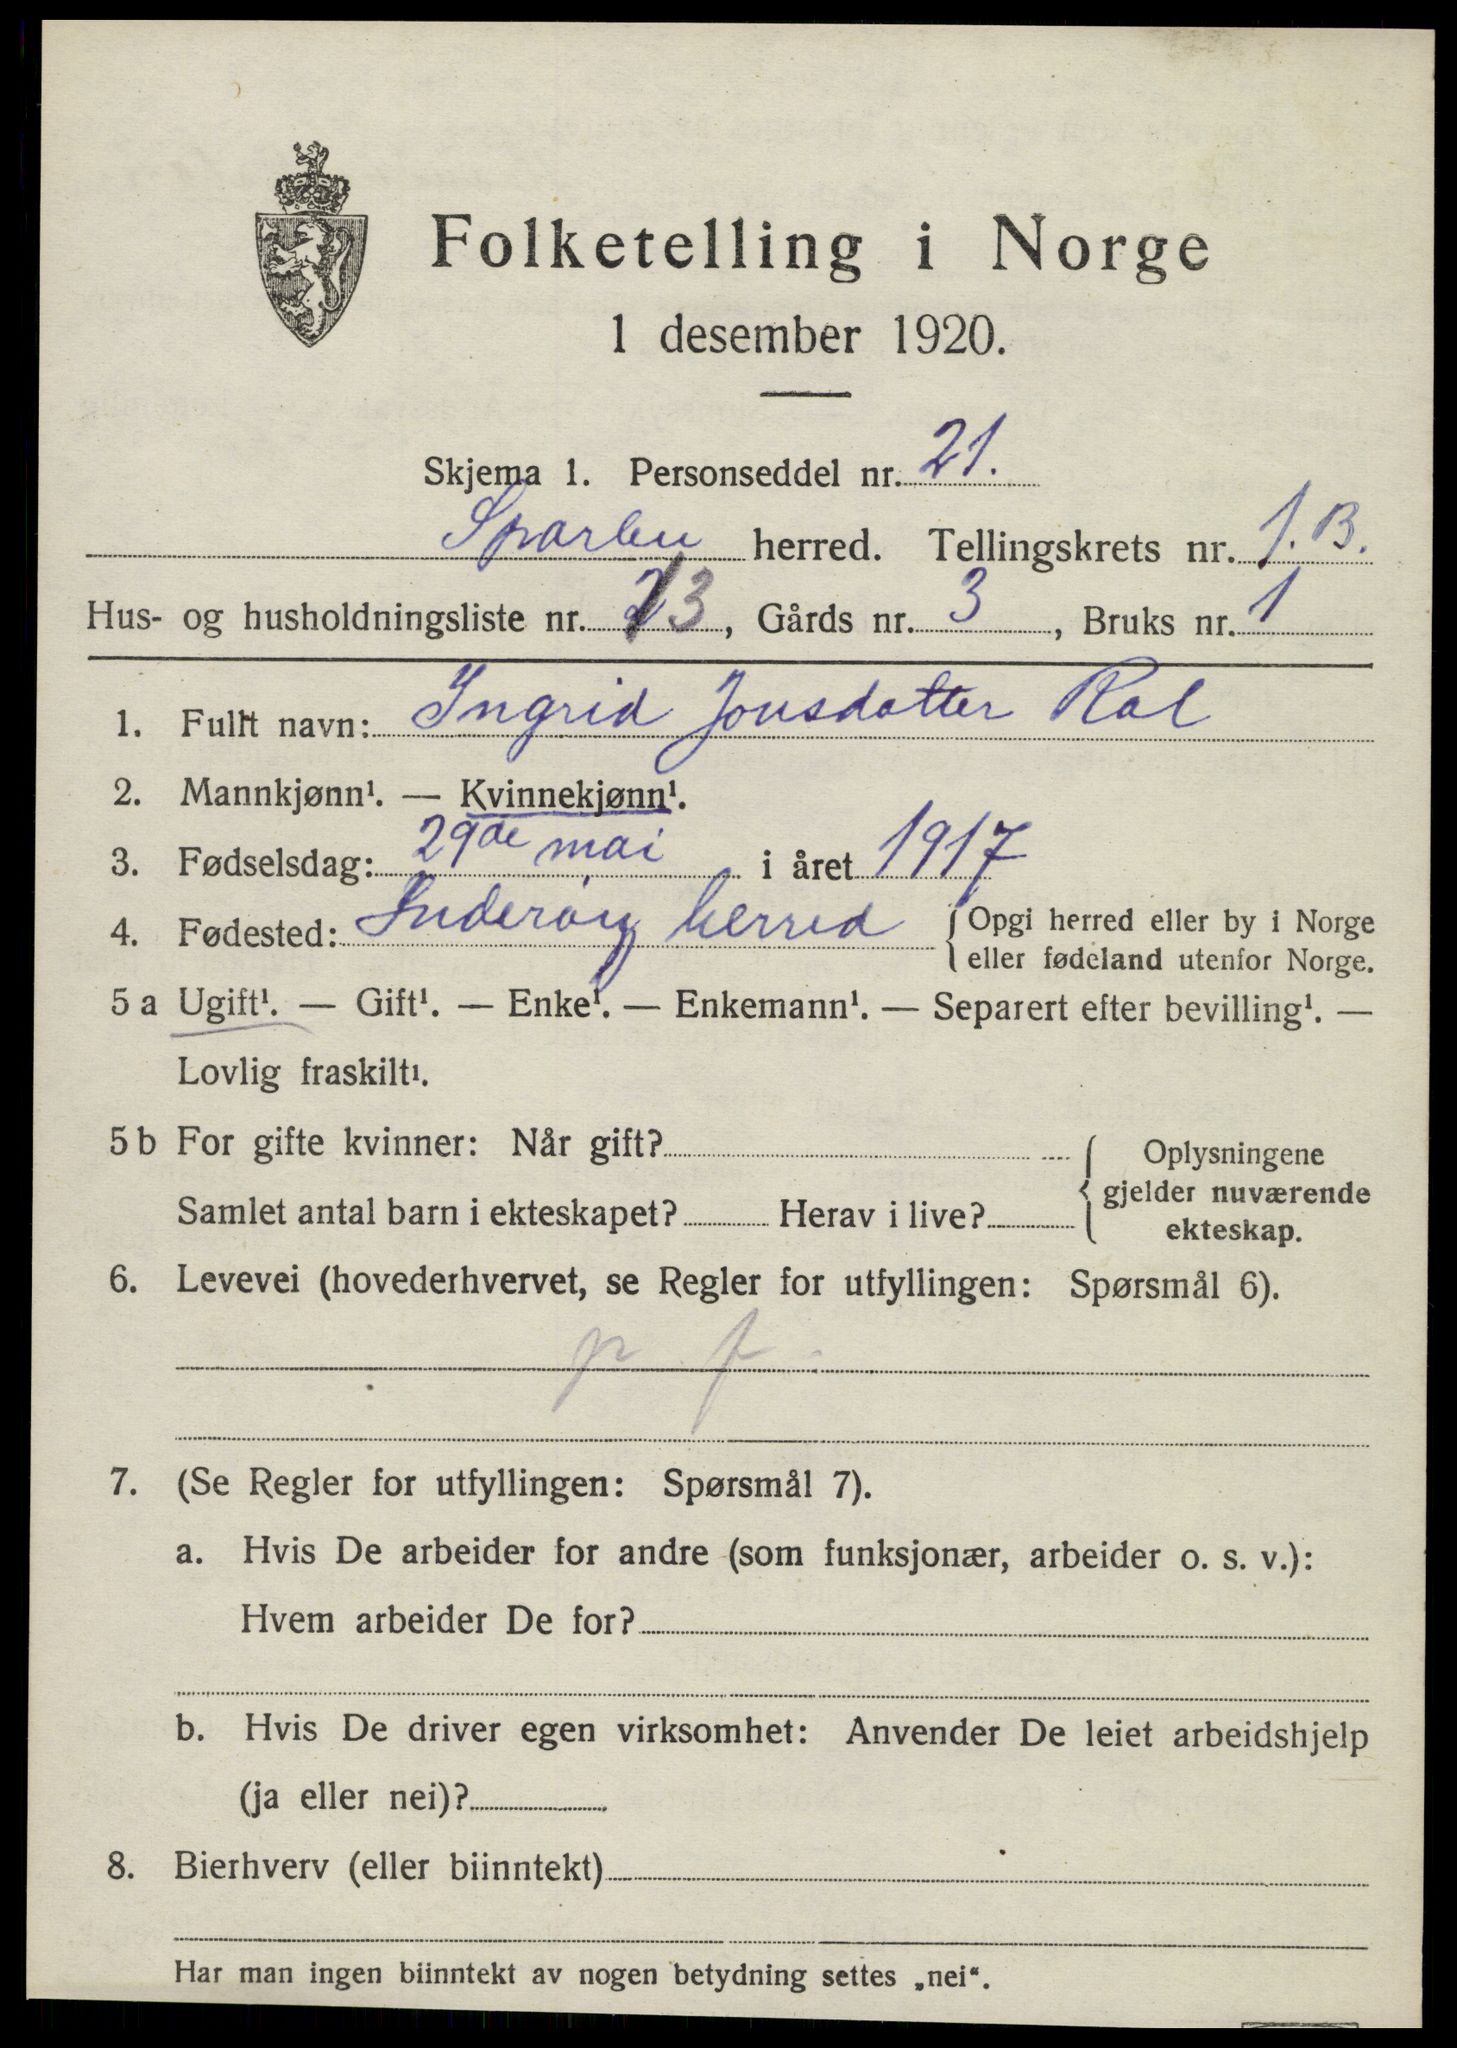 Folketelling i Norge
1 desember 1920.
Skjema 1. Personseddel nr. 21.
Sparbu herred. Tellingskrets nr. 1. B.
Hus- og husholdningsliste nr. 3, Gårds nr. 3, Bruks nr. 1
1. Fullt navn: Ingrid Jonsdatter Rol
2. Mannkjønn¹. — Kvinnekjønn¹.
3. Fødselsdag: 29de mai i året 1917
4. Fødested: Inderøy herred { Opgi herred eller by i Norge
eller fødeland utenfor Norge.
5 a Ugift¹. — Gift¹. — Enke¹. — Enkemann¹. — Separert efter bevilling¹. —
Lovlig fraskilt¹.
5 b For gifte kvinner: Når gift? { Oplysningene
gjelder nuværende
ekteskap.
Samlet antal barn i ekteskapet? Herav i live?
6. Levevei (hovederhvervet, se Regler for utfyllingen: Spørsmål 6).
p f.
7. (Se Regler for utfyllingen: Spørsmål 7).
a. Hvis De arbeider for andre (som funksjonær, arbeider o. s. v.):
Hvem arbeider De for?
b. Hvis De driver egen virksomhet: Anvender De leiet arbeidshjelp
(ja eller nei)?
8. Bierhverv (eller biinntekt)
Har man ingen biinntekt av nogen betydning settes „nei“.